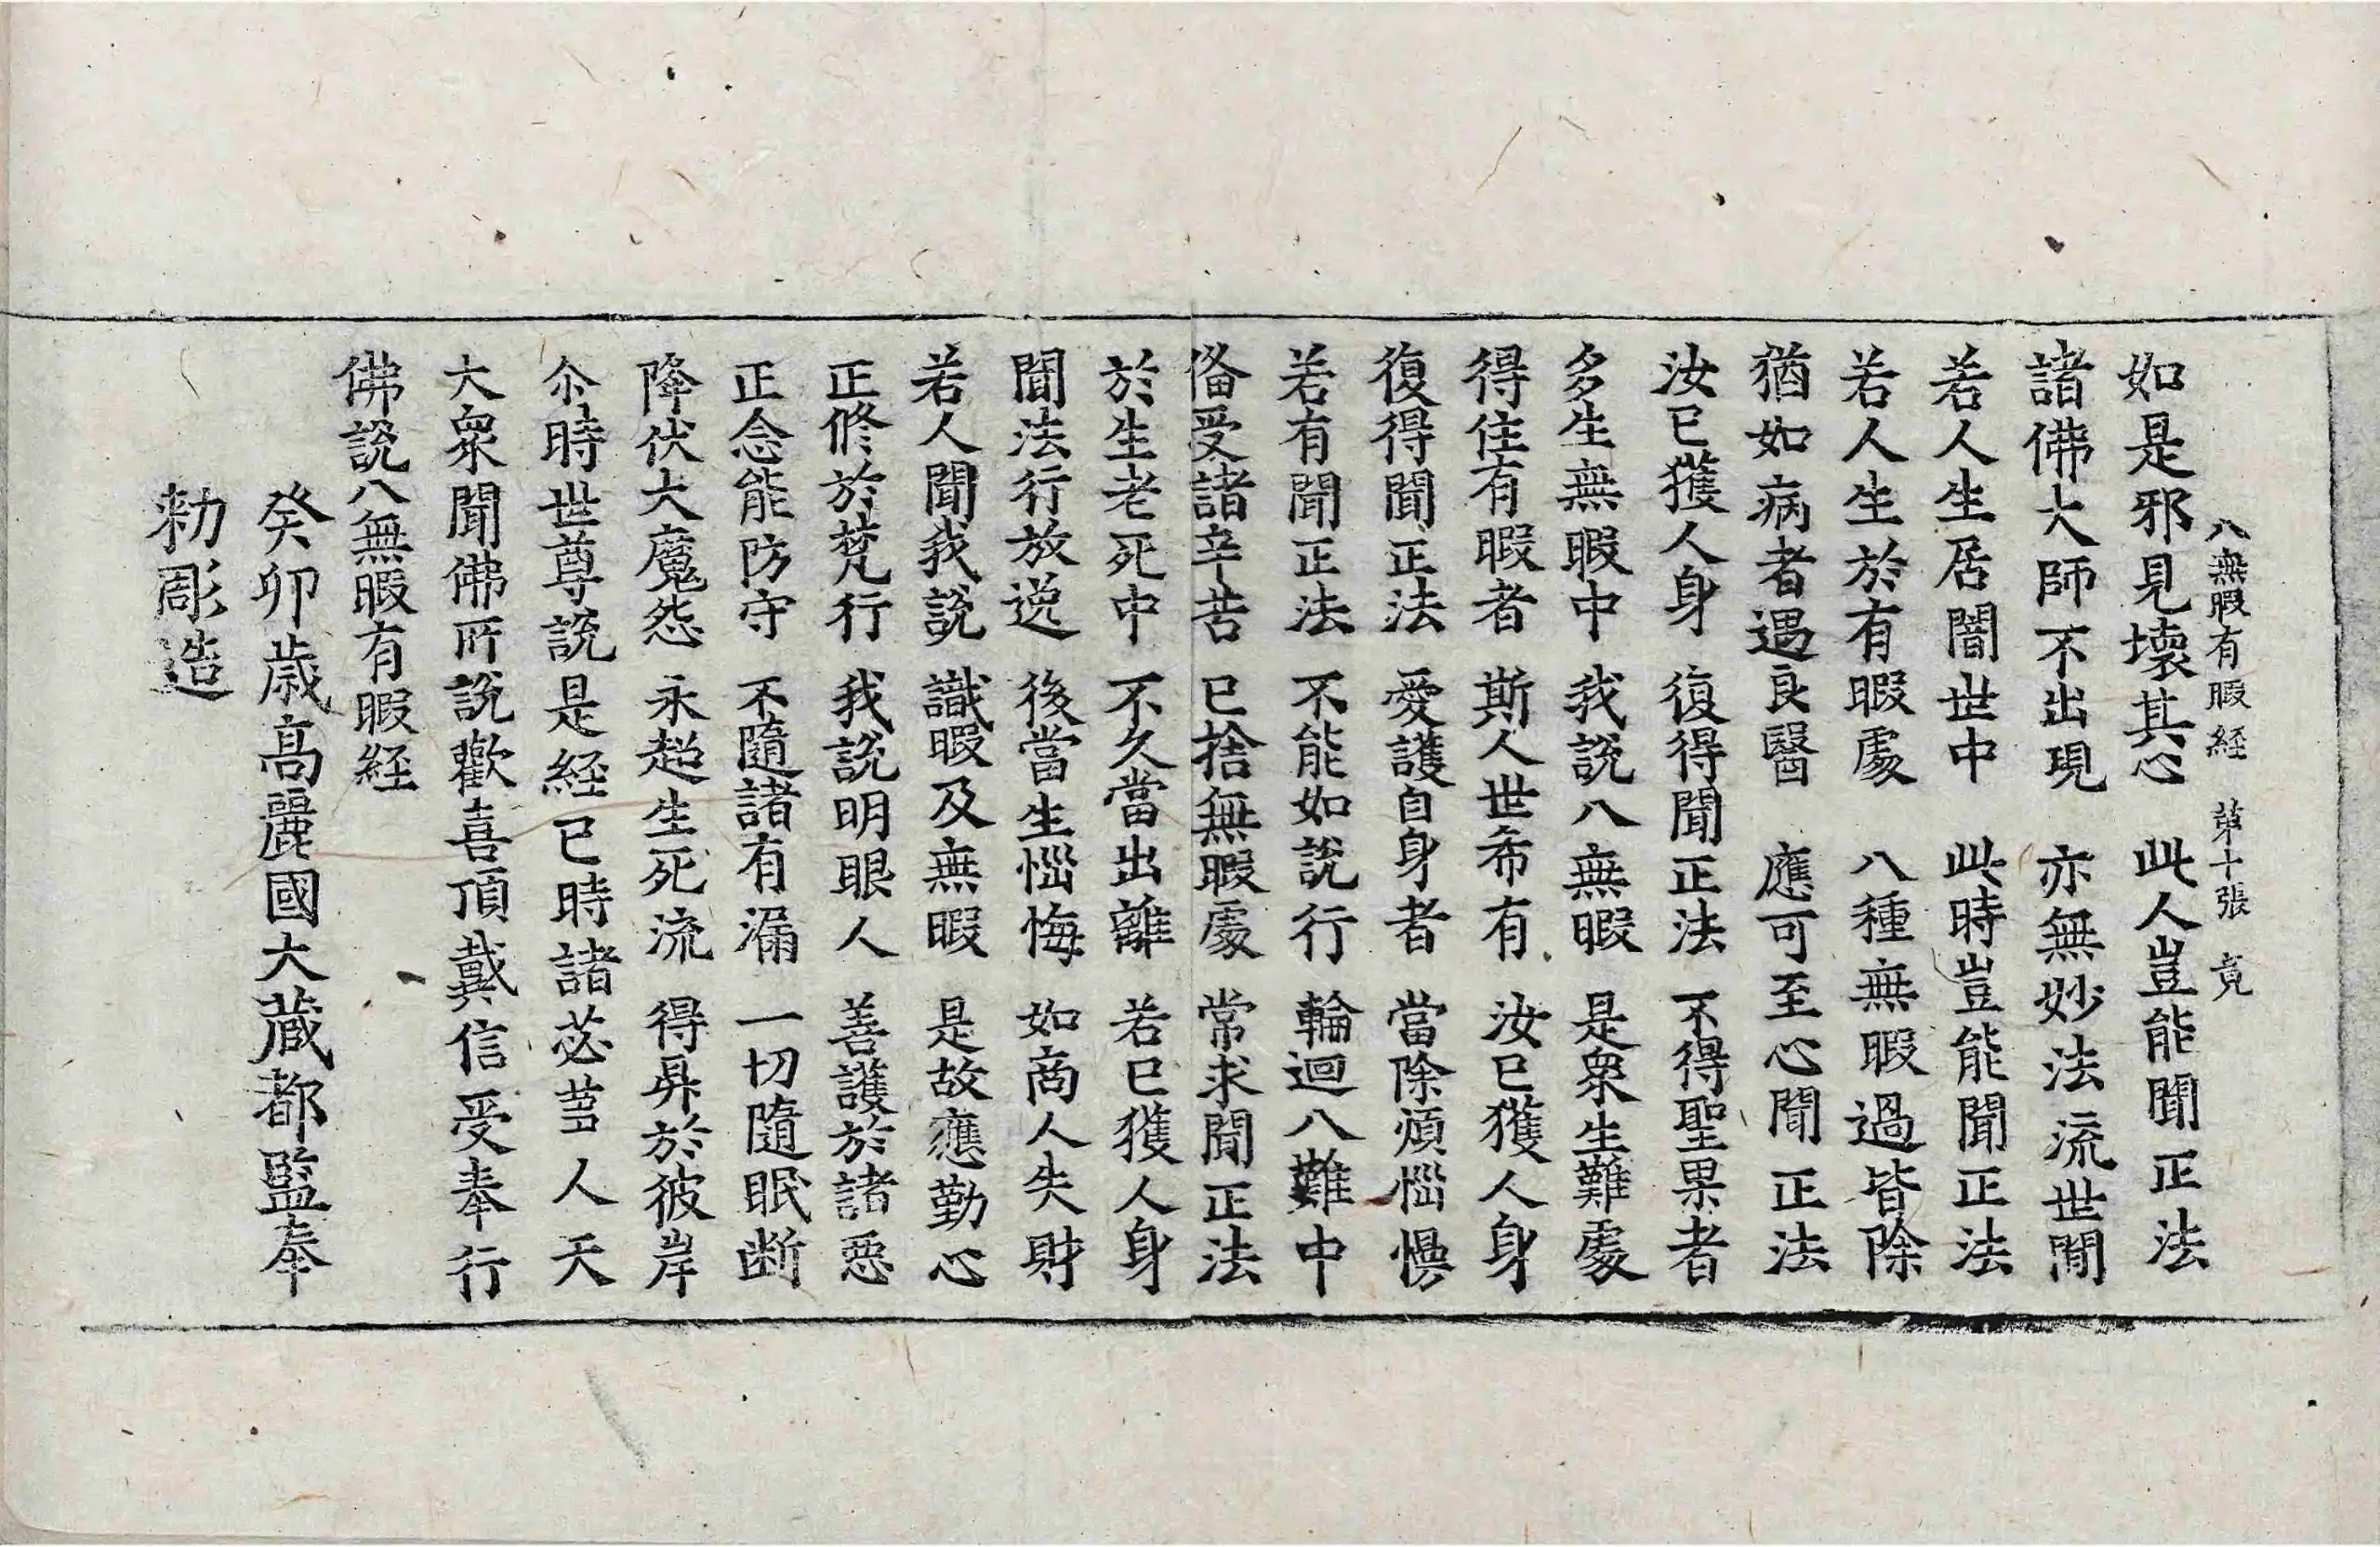 八無暇有暇経 第十張 竟
如是邪見壞其心 此人豈能聞正法
諸佛大師不出現 亦無妙法流世閒
若人生居闇世中 此時豈能聞正法
若人生於有暇處 八種無暇過皆除
猶如病者遇良醫 應可至心聞正法
汝已獲人身 復得聞正法 不得聖果者
多生無暇中 我說八無暇 是衆生難處
得住有暇者 斯人世希有 汝已獲人身
復得聞正法 愛護自身者 當除煩惱慢
若有聞正法 不能如說行 輪迴八難中
俻受諸辛苦 已捨無暇處 常求聞正法
於生老死中 不久當出離 若已獲人身
聞法行放逸 後當生惱悔 如商人失財
若人聞我說 識暇及無暇 是故應勤心
正修於梵行 我說明眼人 善護於諸惡
正念能防守 不隨諸有漏 一切隨眠断
降伏大魔怨 永超生死流 得昇於彼岸
尒時世尊說是経已時諸苾芻人天
大衆聞佛所說歡喜頂戴信受奉行
佛說八無暇有暇経
癸卯歳高麗國大藏都監奉
勑彫造